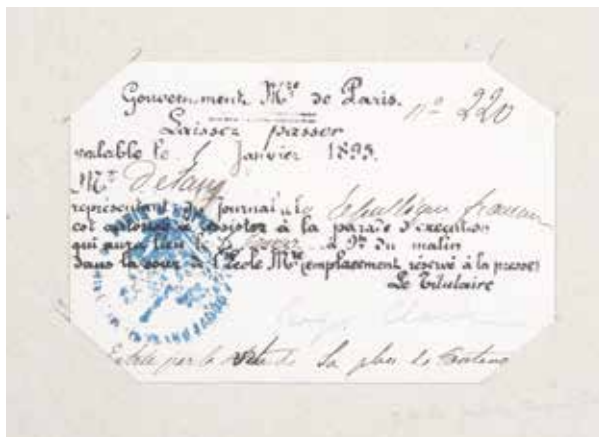 Gouvernement Mre de Paris.
nº 220
Laissez passer
valable le 5 Janvier 1895.
Mr
représentant du journal la République française
est autorisé à assister à la parade d'exécution
qui aura lieu le 5 à 9h du matin
dans la cour de l'École Mre (emplacement réservé à la presse)
Le Titulaire
Entrée par la de la place de Fontenoy